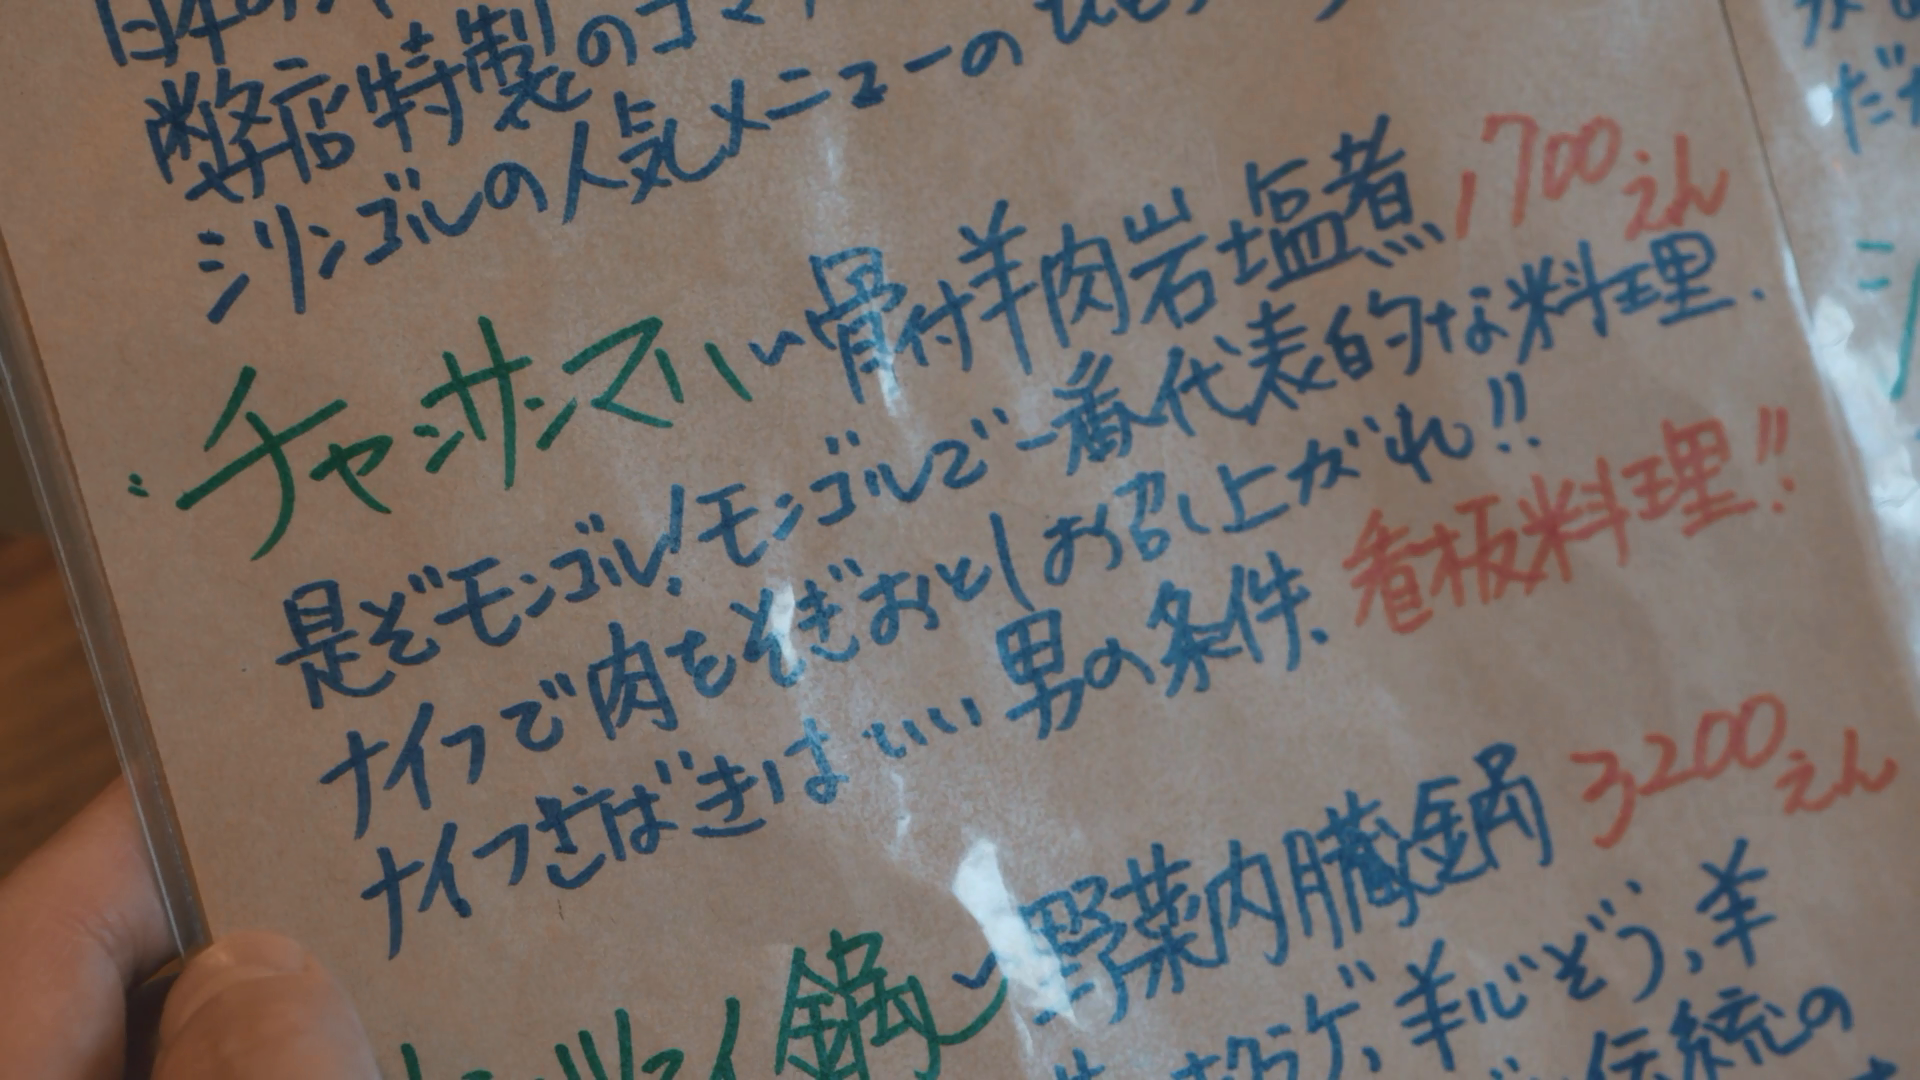 弊店特製のゴマ
シリンゴルの人気メニューの
チャンサンマハ〜骨付羊肉岩塩煮 1,700えん
是ぞモンゴル!モンゴルで一番代表的な料理.
ナイフで肉をそぎおとしお召し上がれ!!
ナイフさばきはいい男の条件、看板料理!!
鍋〜野菜内臓鍋 3,200えん
キクラゲ、羊心ぞう、羊
伝統の